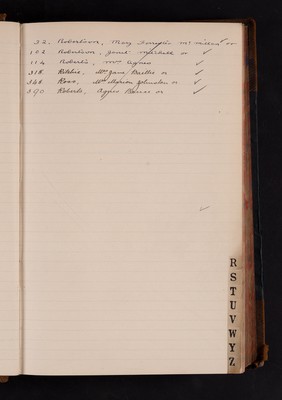 32. Robertson, Mary Forsyth or
102 Robertson, Janet or ✓
114 Roberts, Mrs Agnes ✓
318. Ritchie, Mrs Jane or ✓
346 Ross, Mrs Johnston or ✓
390 Roberts, Agnes or ✓
R
S
T
U
V
W
Y
Z